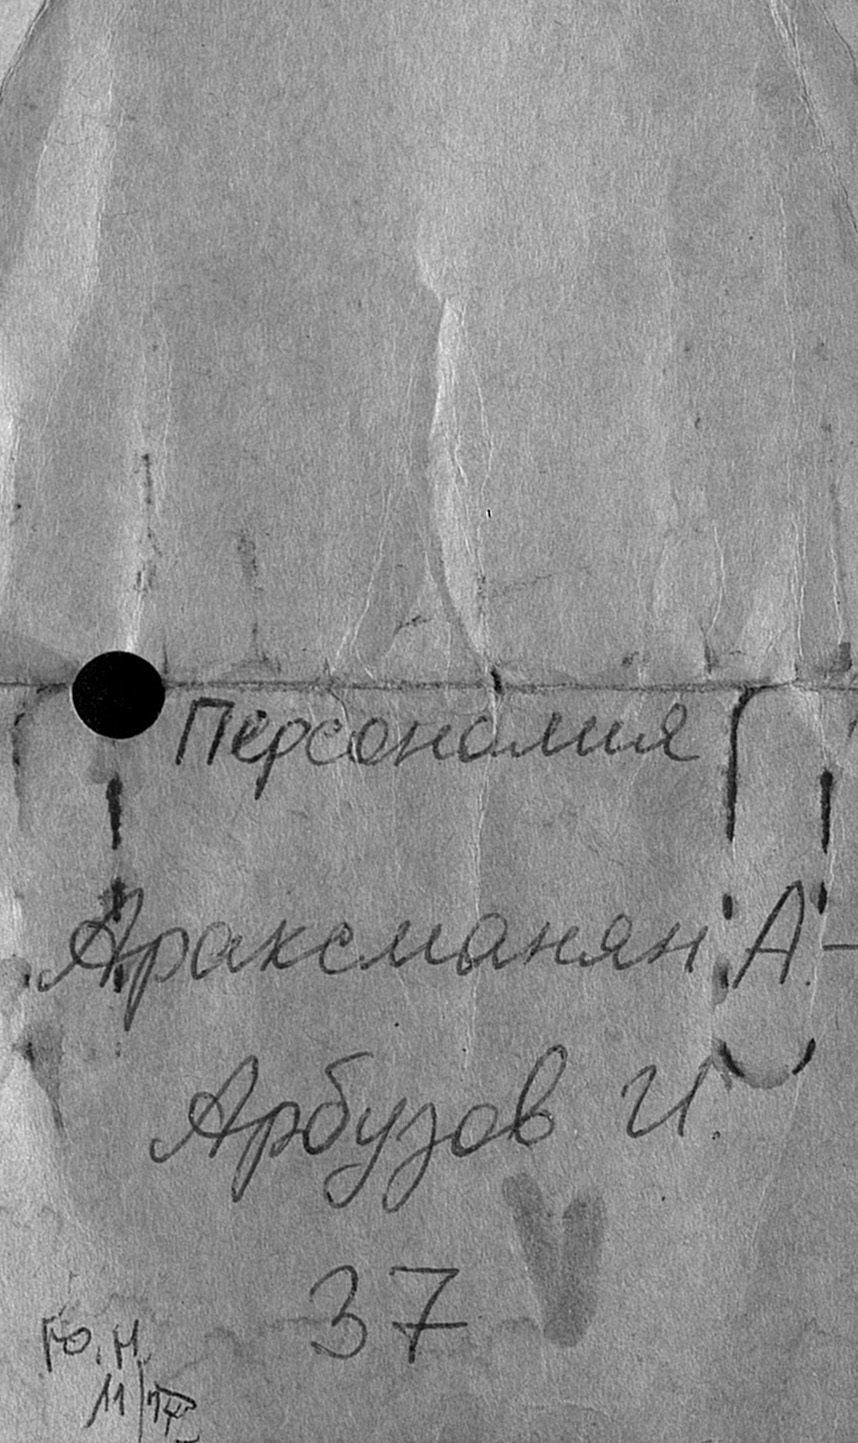 Персоналия
Араксманян А. –
Арбузов И.
37
Ю.Н.
11/IV